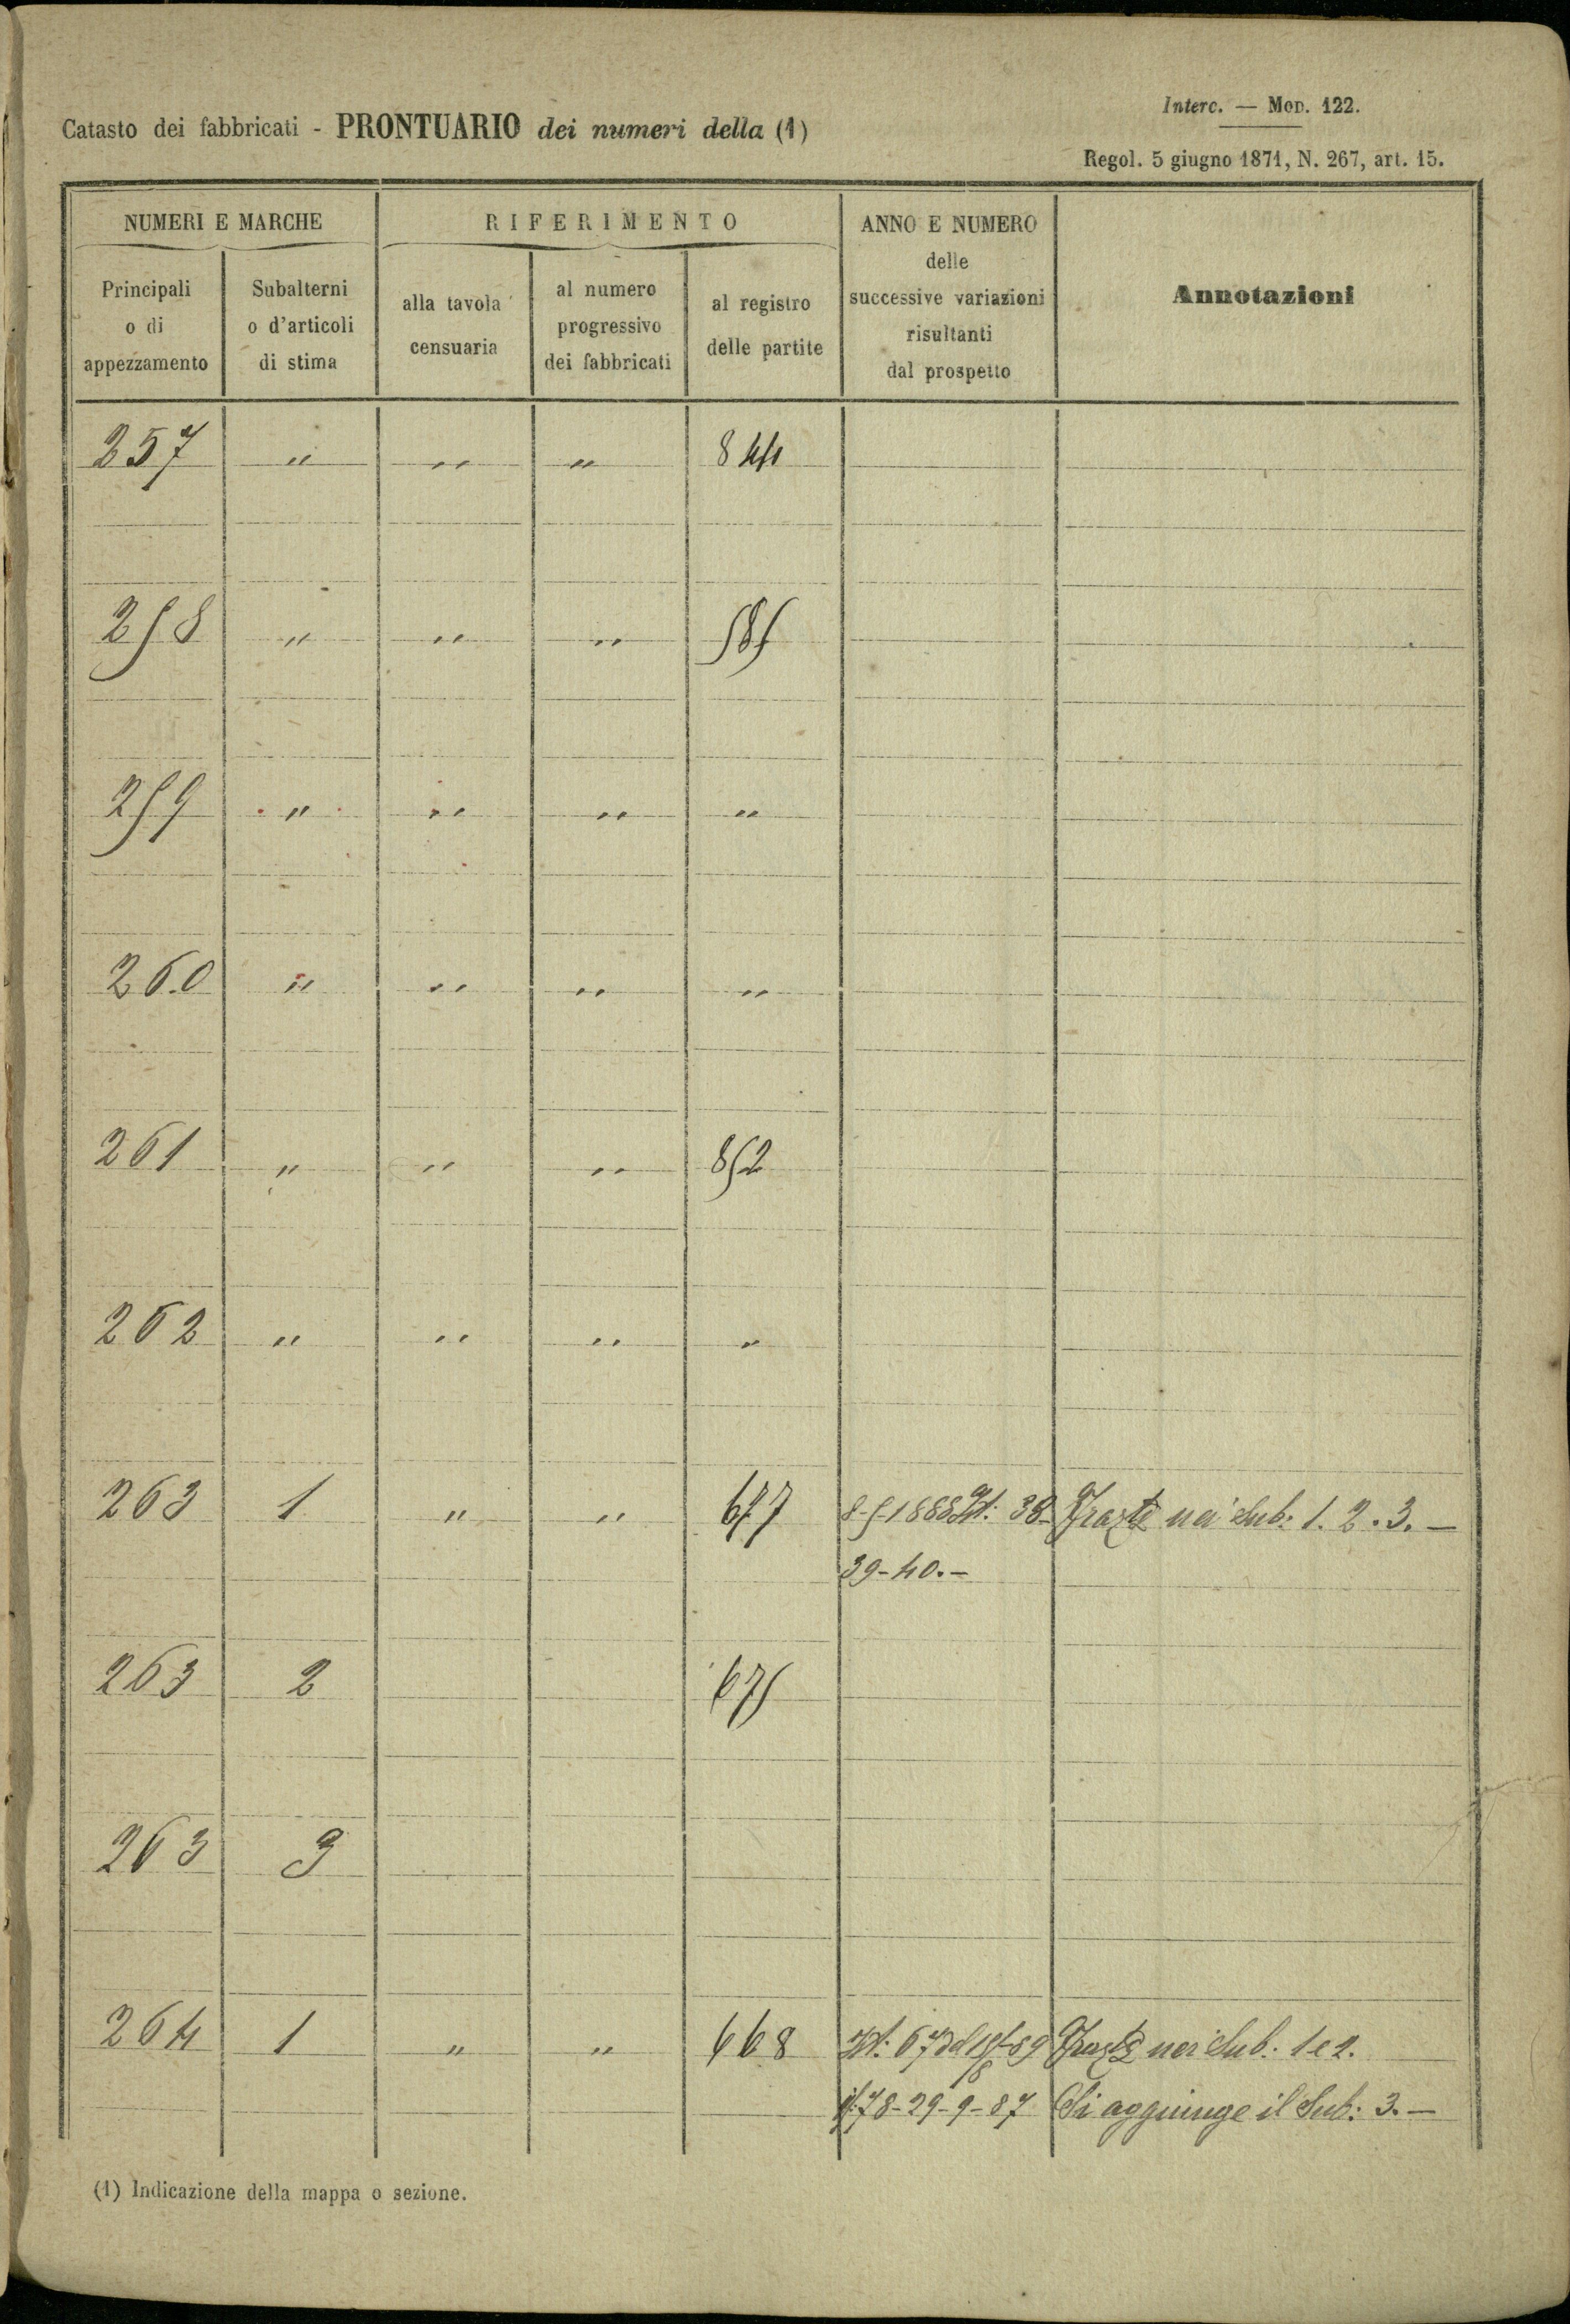 Interc. — Mod. 122.
Catasto dei fabbricati - PRONTUARIO dei numeri della (1)
Regol. 5 giugno 1871, N. 267, art. 15.
NUMERI E MARCHE
RIFERIMENTO
ANNO E NUMERO
delle
successive variazioni
risultanti
dal prospetto
Annotazioni
Principali
o di
appezzamento
Subalterni
o d'articoli
di stima
alla tavola
censuaria
al numero
progressivo
dei fabbricati
al registro
delle partite
257 " " " 844
258 " " " 585
259 " " " "
260 " " " "
261 " " " 852
262 " " " "
263 1 " " 677 8-5-1888 38- nei Sub: 1. 2. 3. —
39-40.-
263 2 675
263 3
264 1 " " 668 67 89 nei Sub: 1 e 2.
78-29-9-87 Si aggiunge il Sub: 3. —
(1) Indicazione della mappa o sezione.